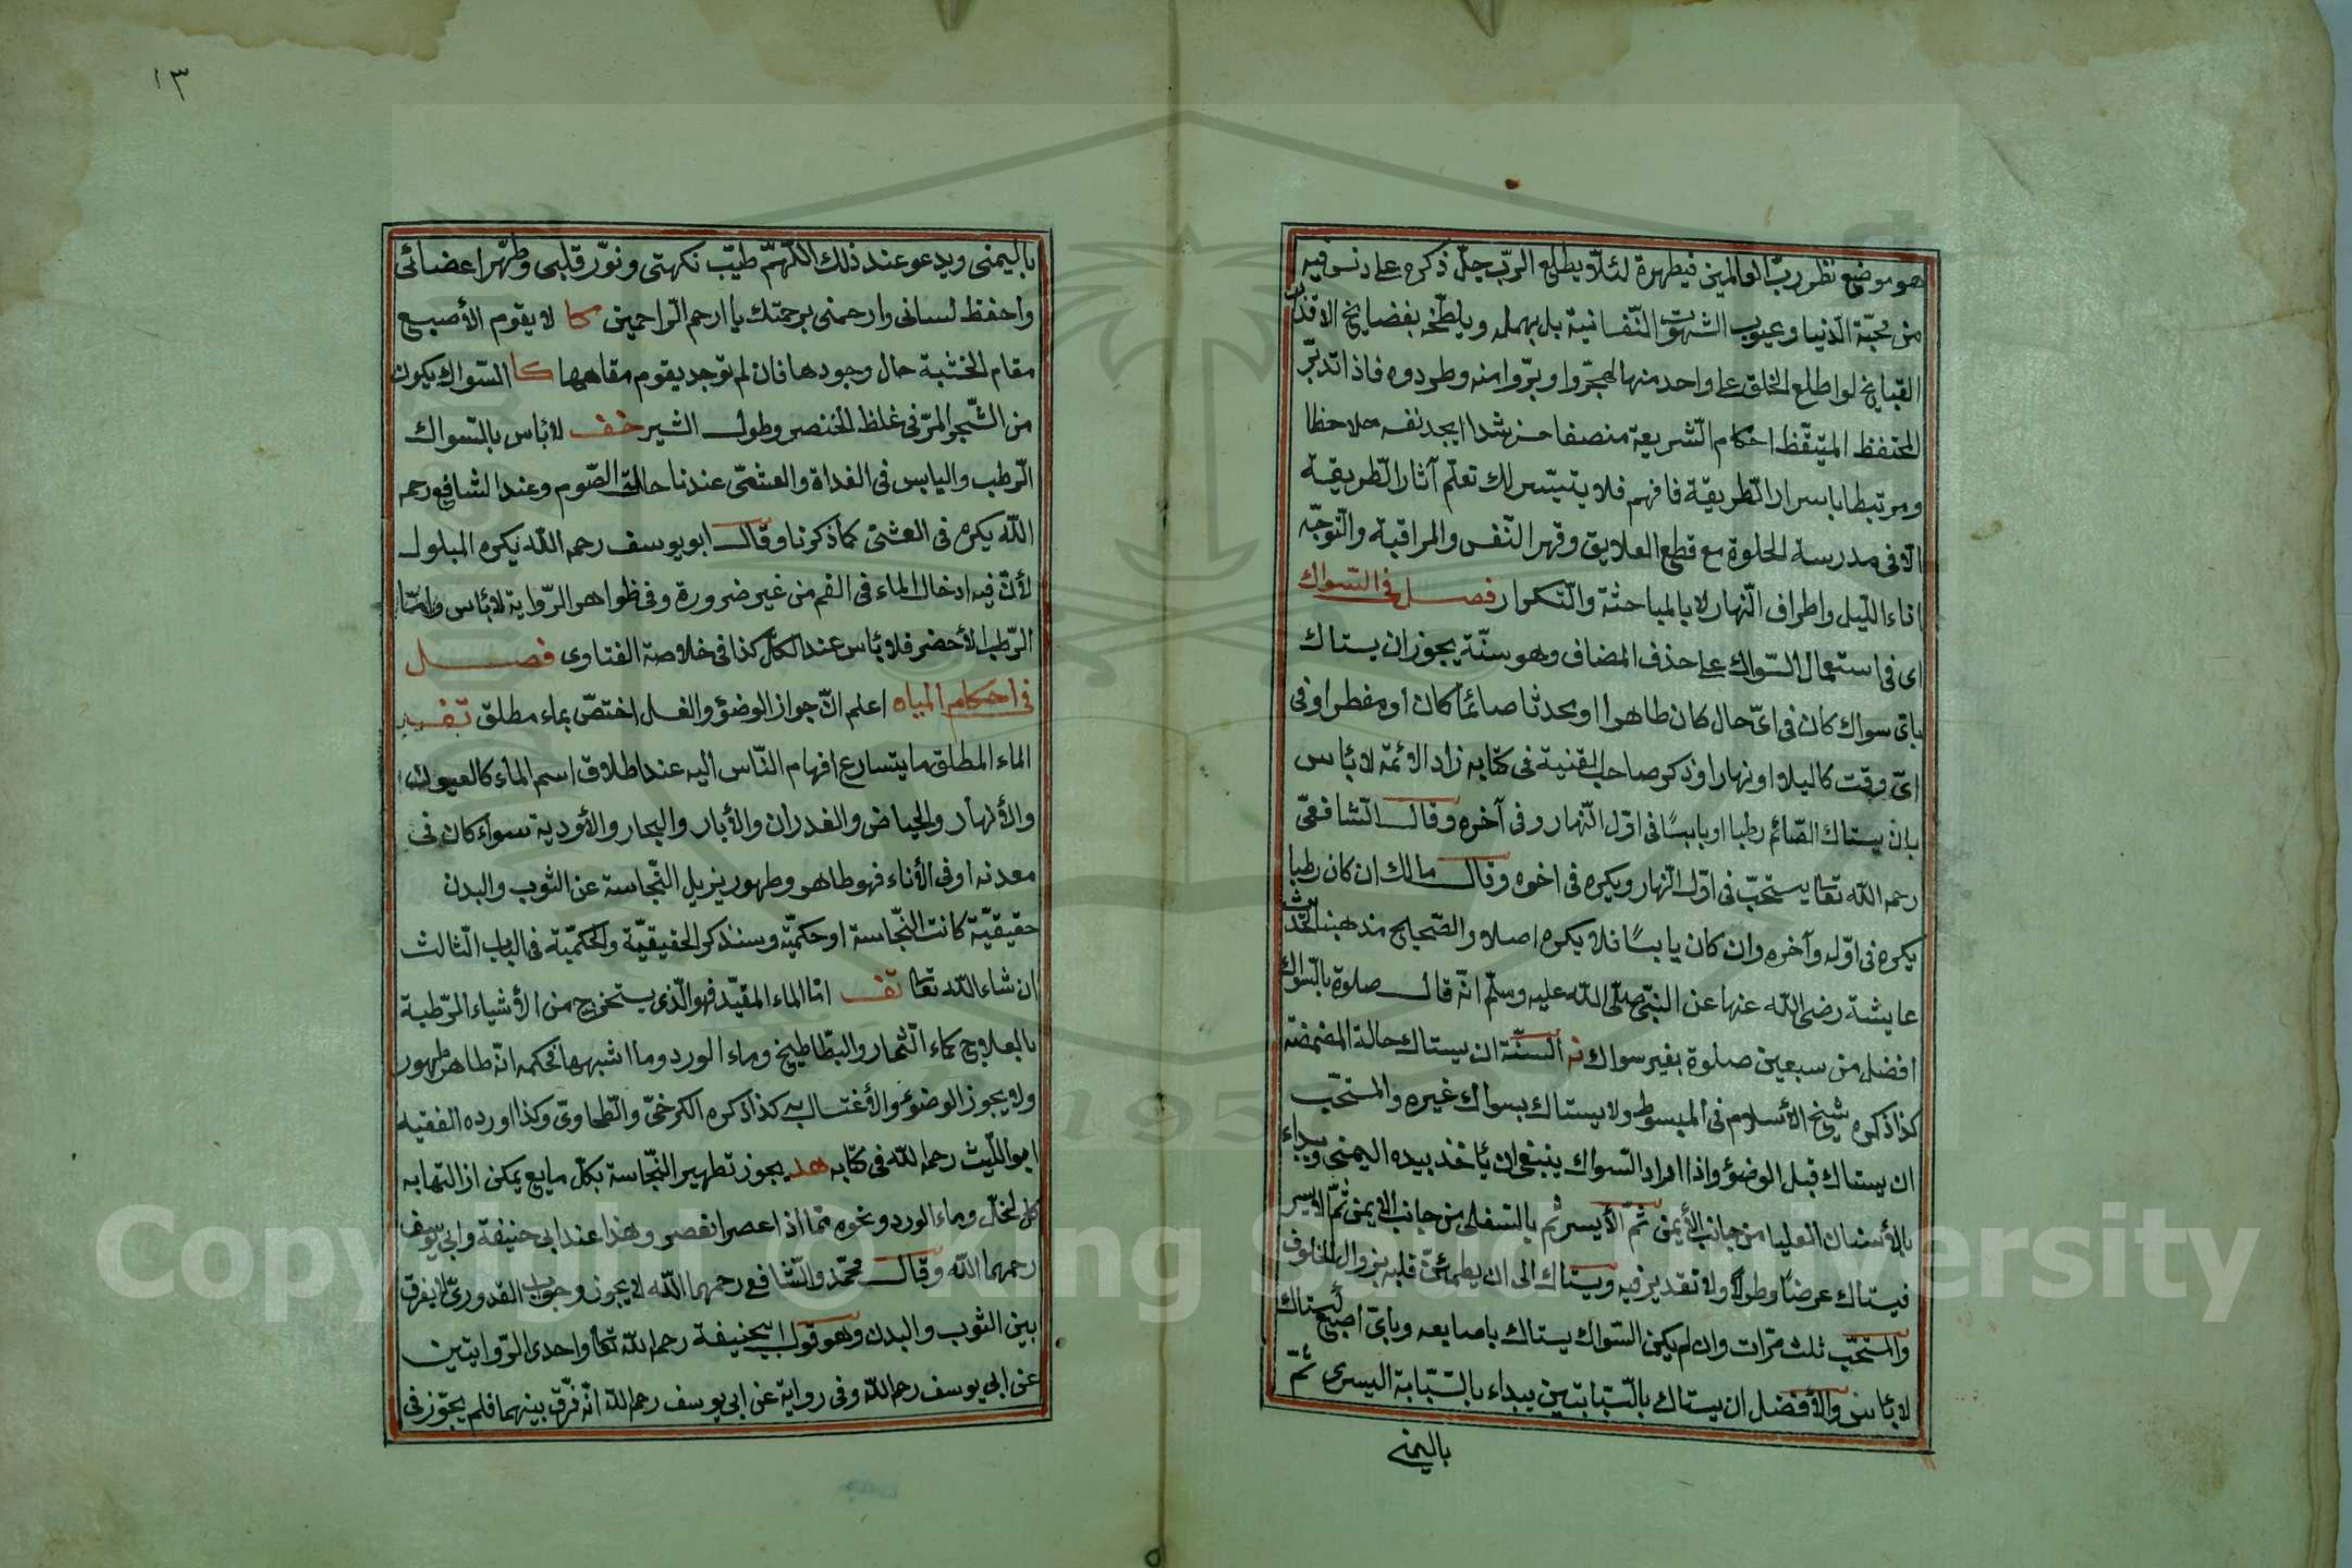 هو موضع نظر ربّ العالمين فيطهره لئلّا يطلع الربّ جلّ ذكره على دنس فيه
من محبّة الدّنيا وعيوب الشهوت النّفسانية بل يهمله ويلطّخه بفضايح الاقذار
القبايح لو اطلع الخلق على واحد منها لهجروا وتبرّوا منه وطردوه فاذا تدبّر
المتيقّظ احكام الشريعة منصفا يجد نفسه ملاحظا
ومرتبطا باسرار الطّريقة فافهم فلا يتيسّر لك تعلّم آثار الطّريقة
الّا فى مدرسة الخلوة مع قطع العلايق وقهر النّفس والمراقبة والتّوجّه
اناء اللّيل واطراف النّهار لا بالمباحثة والتّكرار فصل فى السّواك
اى فى استعمال السّواك على حذف المضاف وهو سنّة يجوز ان يستاك
باىّ سواك كان فى اىّ حال كان طاهرا او محدثا صائما كان او مفطرا وفى
اىّ وقت كان ليلا او نهارا وذكر صاحب القنية فى كتابه زاد الائمّة لا بأس
بان يستاك الصّائم رطبا او يابسًا فى اوّل النّهار وفى آخره وقال الشّافعىّ
رحمه الله تعالى يستحبّ فى اوّل النّهار ويكره فى اخره وقال مالك ان كان رطبا
يكره فى اوّله وآخره وان كان يابسًا فلا يكره اصلا والصّحيح مذهبنا لحديث
عايشة رضى الله عنها عن النّبىّ صلّى الله عليه وسلّم انّه قال صلوة بالسّواك
افضل من سبعين صلوة بغير سواك نه السنّة ان يستاك حالة المضمضة
كذا ذكره شيخ الأسلام فى المبسوط ولا يستاك بسواك غيره والمستحبّ
ان يستاك قبل الوضوء واذا اراد السّواك ينبغى ان يأخذ بيده اليمنى ويبداء
بالأسنان العليا من جانب الأيمن ثمّ الأيسر ثم بالسّفلى من جانب الايمن ثمّ الايسر
فيستاك عرضًا وطولًا ولا تقدير فيه ويستاك الى ان يطمئنّ قلبه بزوال الخلوف
والمستحبّ ثلث مرّات وان لم يكن السّواك يستاك باصابعه وباىّ اصبع استاك
لا بأس والأفضل ان يستاك بالسّبابتين يبداء بالسّبّابة اليسرى ثمّ
باليمنى
١٣
باليمنى ويدعو عند ذلك اللّهمّ طيّب نكهتى ونوّر قلبى وطهّر اعضائى
واحفظ لسانى وارحمنى برحمتك يا ارحم الرّاحمين كا لا يقوم الأصبع
مقام الخشبة حال وجودها فان لم توجد يقوم مقامها كا السّواك يكون
من الشّجر المرّ فى غلظ الخنصر وطول الشبر خف لا بأس بالسّواك
الرّطب واليابس فى الغداة والعشىّ عندنا حالة الصّوم وعند الشافع رحمه
الله يكره فى العشىّ كما ذكرنا وقال ابو يوسف رحمه الله يكره المبلول
لأنّ فيه ادخال الماء فى الفم من غير ضرورة وفى ظواهر الرّواية لا بأس وامّا
الرّطب الأخضر فلا بأس عند الكلّ كذا فى خلاصة الفتاوى فصل
فى احكام المياه اعلم انّ جواز الوضوء والغسل اختصّ بماء مطلق تفسير
الماء المطلق ما يتسارع افهام النّاس اليه عند اطلاق اسم الماء كالعيون
والأنهار والحياض والغدران والأبار والبحار والأودية سواء كان فى
معدنه او فى الأناء فهو طاهر وطهور يزيل النّجاسة عن الثوب والبدن
حقيقيّة كانت النّجاسة او حكميّة وسنذكر الحقيقيّة والحكميّة فى الباب الثالث
ان شاء الله تعالى تف امّا الماء المقيّد فهو الّذى يستخرج من الأشياء الرّطبة
بالعلاج كماء الثّمار والبطّاطيخ وماء الورد وما اشبهها فحكمه انّه طاهر طهور
ولا يجوز الوضوء والأغتسال به كذا ذكره الكرخىّ والطّحاوىّ وكذا اورده الفقيه
ابو اللّيث رحمه الله فى كتابه هد يجوز تطهير النّجاسة بكلّ مايع يمكن ازالتها به
كالخلّ وماء الورد ونحوه ممّا اذا عصر انعصر وهذا عند ابى حنيفة وابى يوسف
رحمهما الله وقال محمّد والشّافع رحمهما الله لا يجوز وجواب القدورىّ لا يفرق
بين الثوب والبدن وهو قول ابيحنيفة رحمه الله تعا واحدى الرّوايتين
عن ابى يوسف رحمه الله وفى رواية عن ابى يوسف رحمه الله انّه فرّق بينهما فلم يجوّز فى
Copyright © King Saud University
195